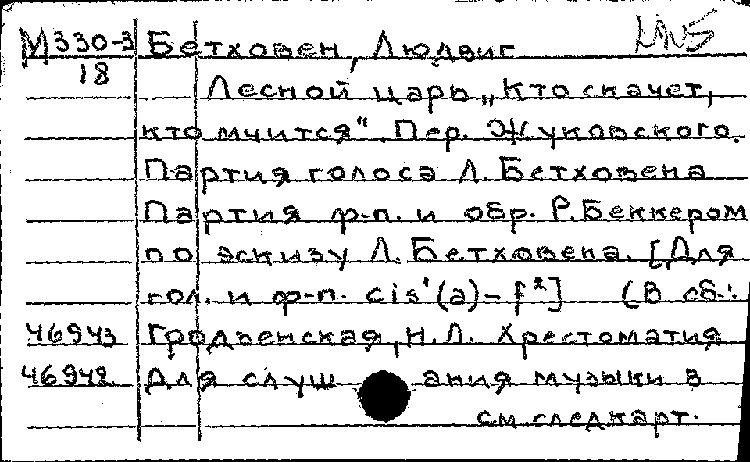 М330-3 Бетховен, Людвиг
18
Лесной царь „Кто скачет,
кто мчится". Пер. Жуковского.
Партия голоса Л. Бетховена
Партия ф-п. и обр. Р. Беккером
по эскизу Л. Бетховена. [Для
гол. и ф-п. cis'(a)-f²] (В сб.:
46943 Гродзенская, Н.Л. Хрестоматия
46942 для слушания музыки в
см. след карт.